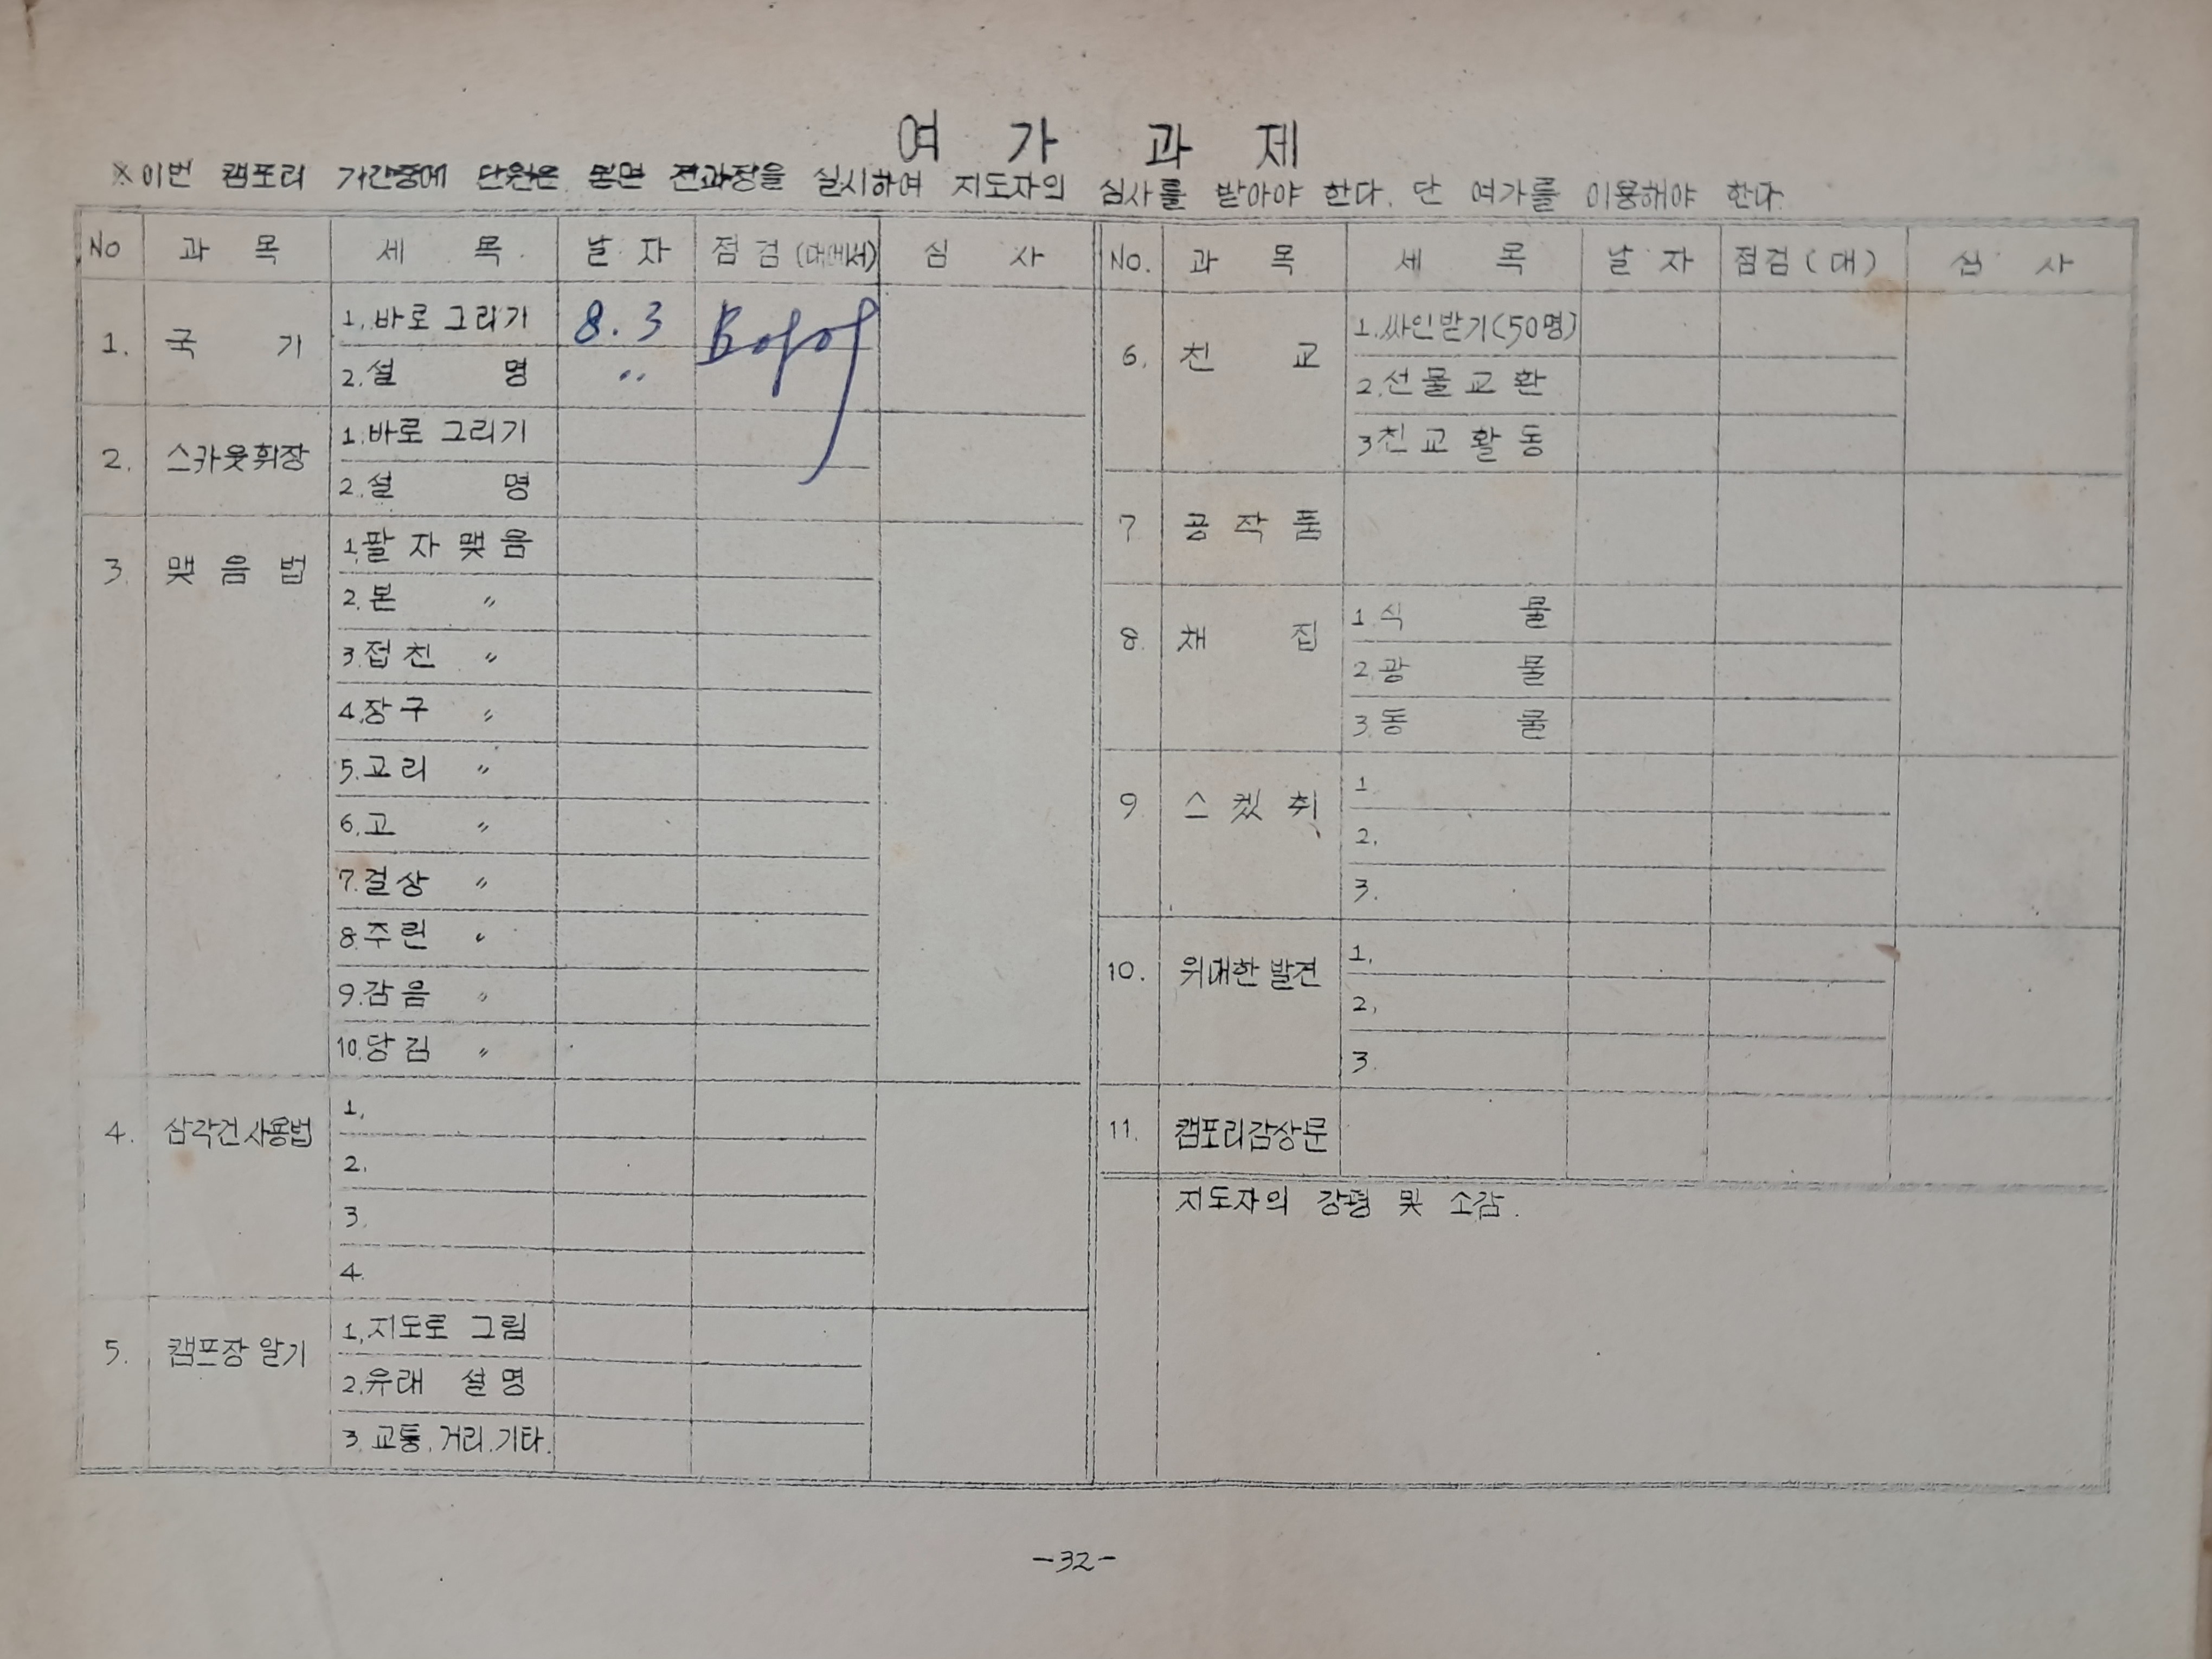 여 가 과 제
※이번 캠포리 기간중에 단원은 본면 전과장을 실시하여 지도자의 심사를 받아야 한다. 단 여가를 이용해야 한다.
No 과 목 세 목 날 자 점 검 심 사
1. 국 기
1. 바로 그리기 8.3
2. 설 명 〃
2. 스카웃휘장
1. 바로 그리기
2. 설 명
3. 맺 음 법
1. 팔 자 맺 음
2. 본 〃
3. 접친 〃
4. 장구 〃
5. 고리 〃
6. 고 〃
7. 걸상 〃
8. 주린 〃
9. 감음 〃
10. 당김 〃
4. 삼각건 사용법
1.
2.
3.
4.
5. 캠프장 알기
1. 지도로 그림
2. 유래 설명
3. 교통. 거리. 기타.
No. 과 목 세 목 날 자 점검(대) 심 사
6. 친 교
1. 싸인받기(50명)
2. 선물교환
3 친교활동
7 공작품
8. 채 집
1. 식 물
2. 광 물
3. 동 물
9 스켓취
1
2.
3.
10. 위대한 발견
1.
2.
3.
11. 캠포리감상문
지도자의 강평 및 소감.
-32-